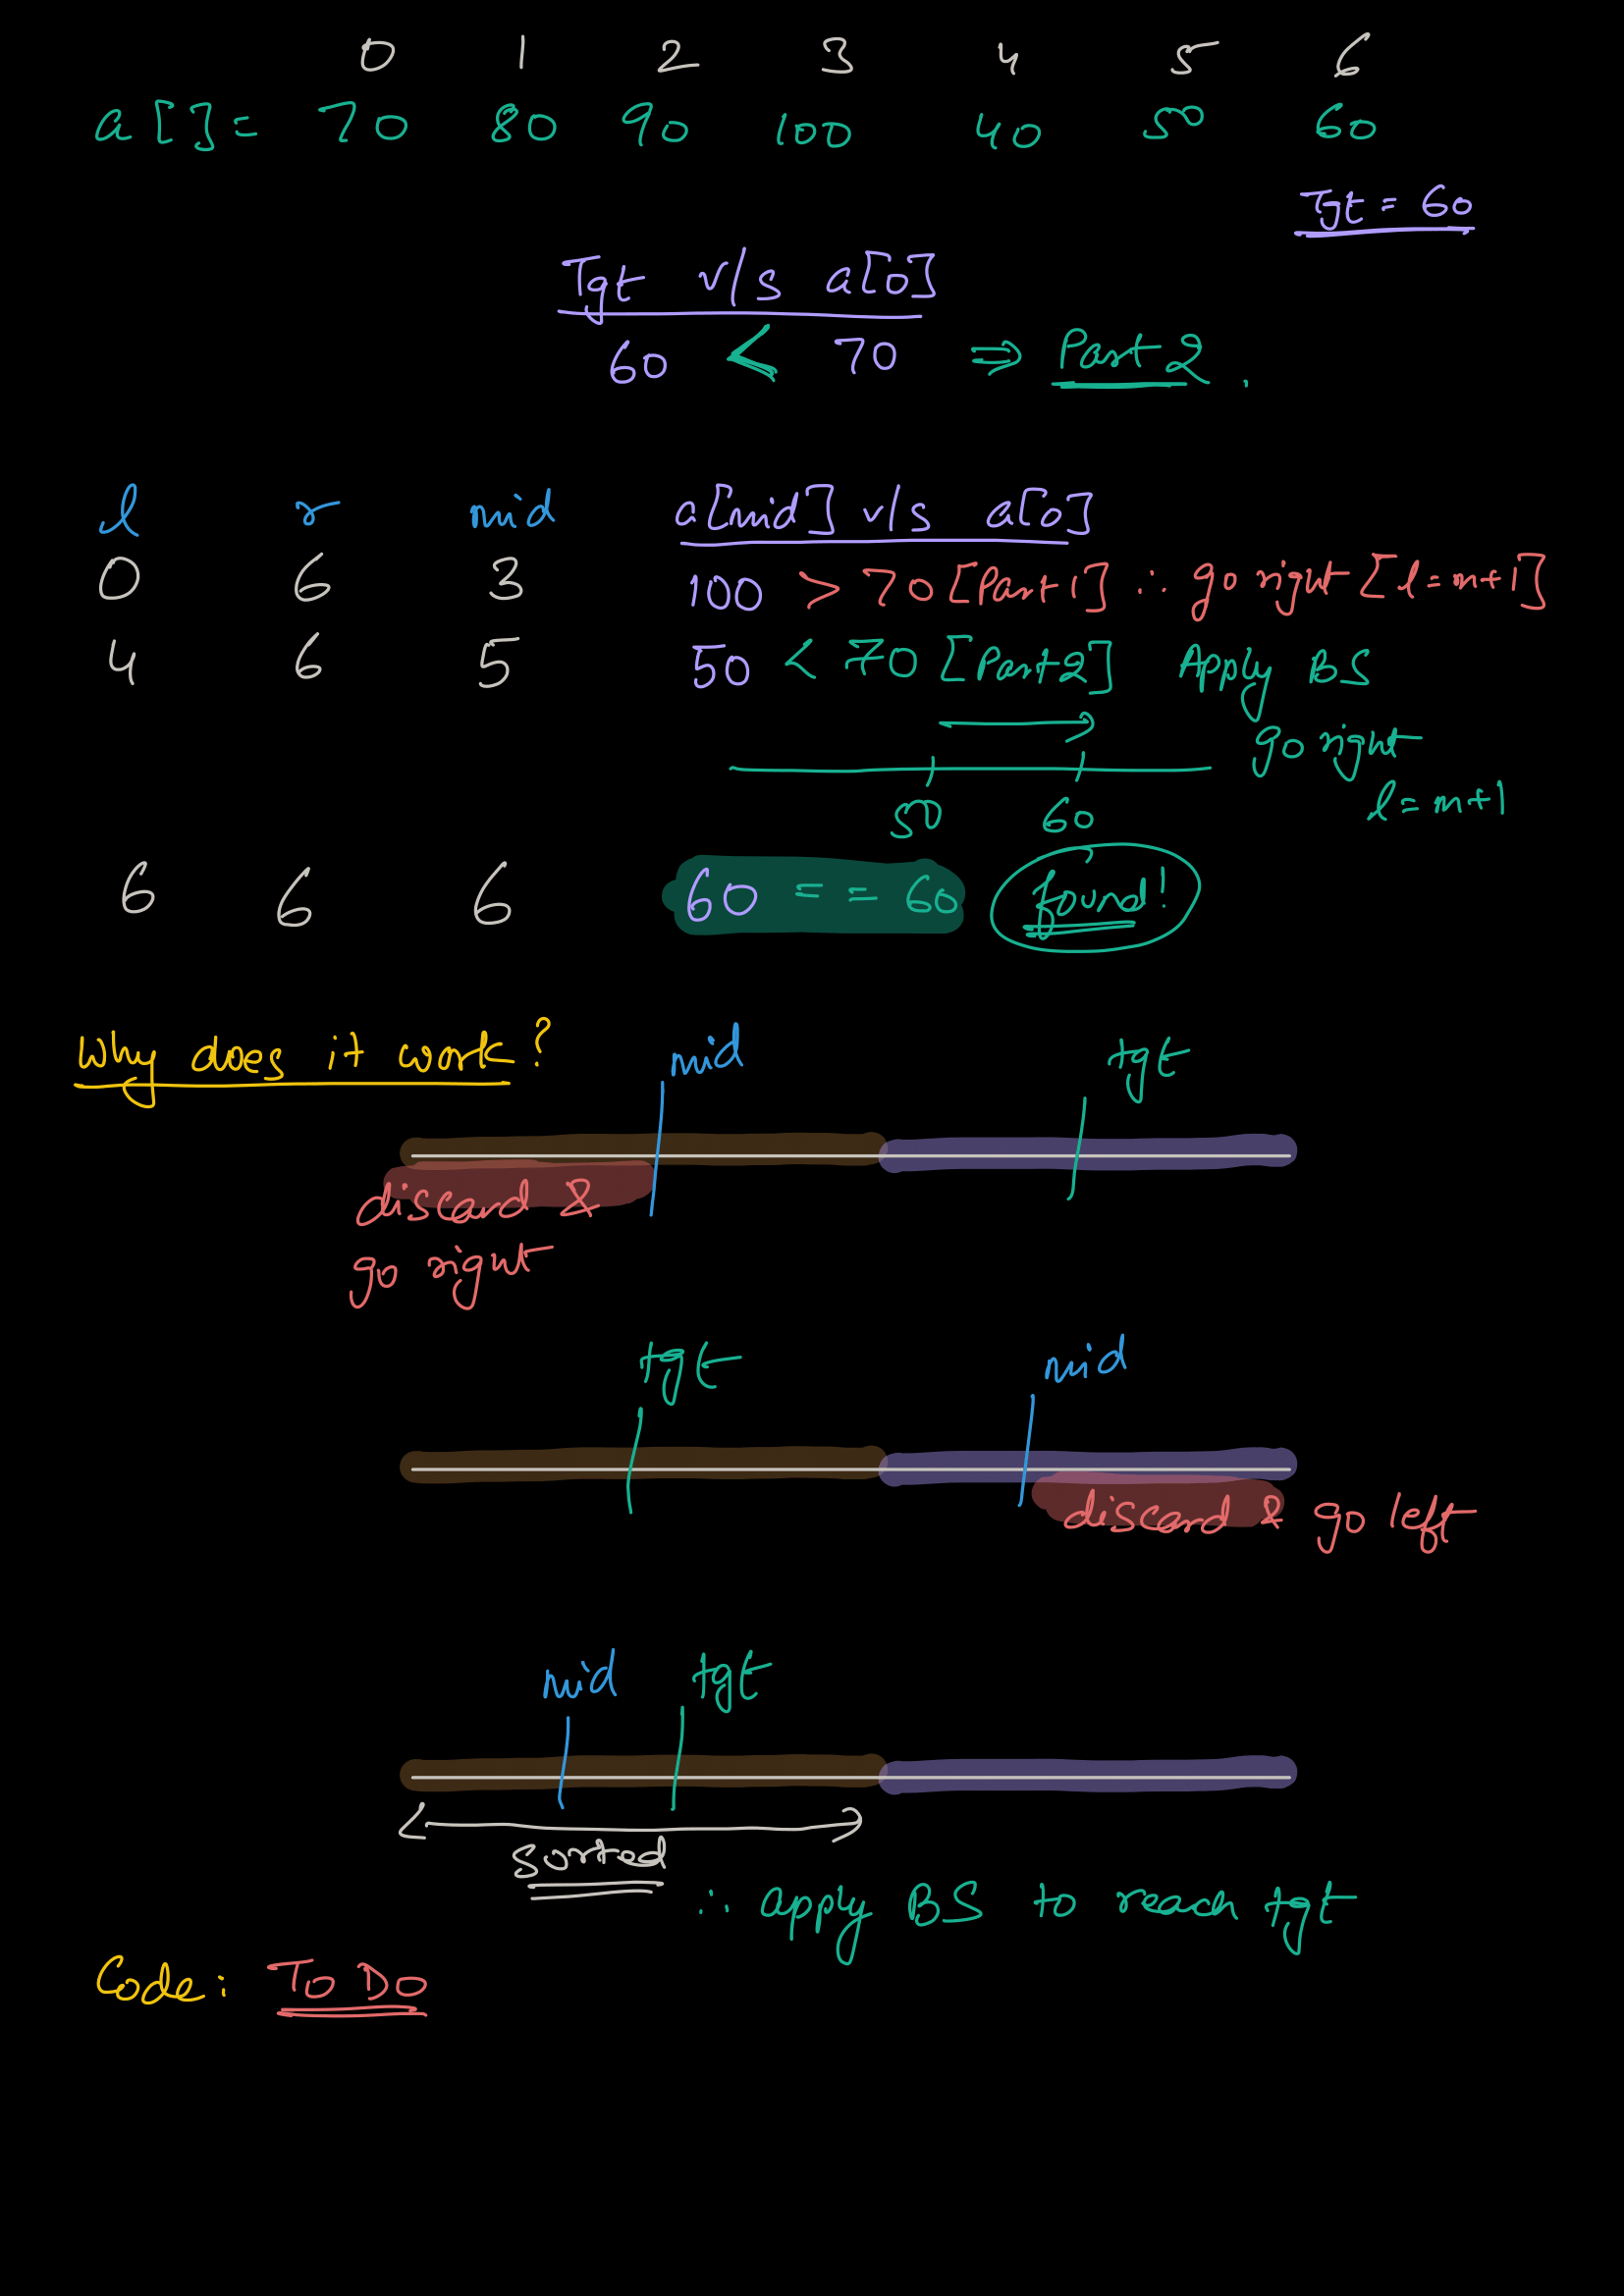 0 1 2 3 4 5 6
a[]= 70 80 90 100 40 50 60
Tgt = 60
Tgt v/s a[0]
60 < 70 ⇒ Part 2.
l r mid a[mid] v/s a[0]
0 6 3 100 > 70 [Part 1] ∴ go right [l=m+1]
4 6 5 50 < 70 [Part 2] Apply BS
go right
l=m+1
50 60
6 6 6 60 == 60 found!
Why does it work?
mid tgt
discard &
go right
tgt mid
discard & go left
mid tgt
sorted
∴ apply BS to reach tgt
Code: To Do